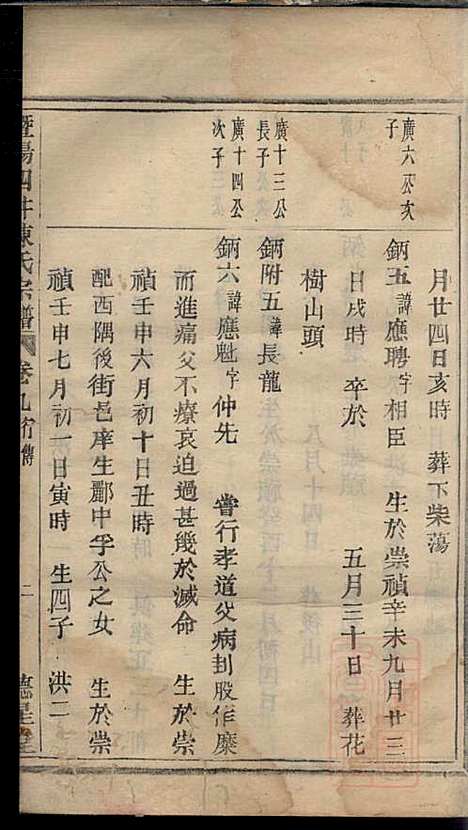 月廿四日亥時 葬下柴蕩
廣六公亥子
鈵五諱應聘字相臣 生於崇禎辛未九月廿三
日戌時 卒於 五月三十日 葬花
樹山頭
廣十三公長子
鈵附五諱長龍
廣十四公次子
鈵六諱應魁字仲先 嘗行孝道父病刲股作糜
而進痛父不療哀迫過甚幾於滅命 生於崇
禎壬申六月初十日丑時
配西隅後街邑庠生酈中孚公之女 生於崇
禎壬申七月初一日寅時 生四子 洪二
暨陽四井陳氏宗譜 卷九 行傳 二 德星堂